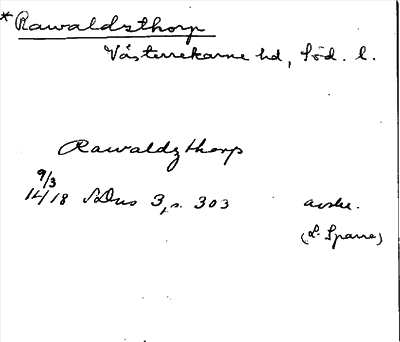 *Rawaldzthorp
Västerrekarne hd, Söd. l.
Rawaldzthorp
9/3
14/18 SDns 3, s. 303 avskr.
(L. Sparre)